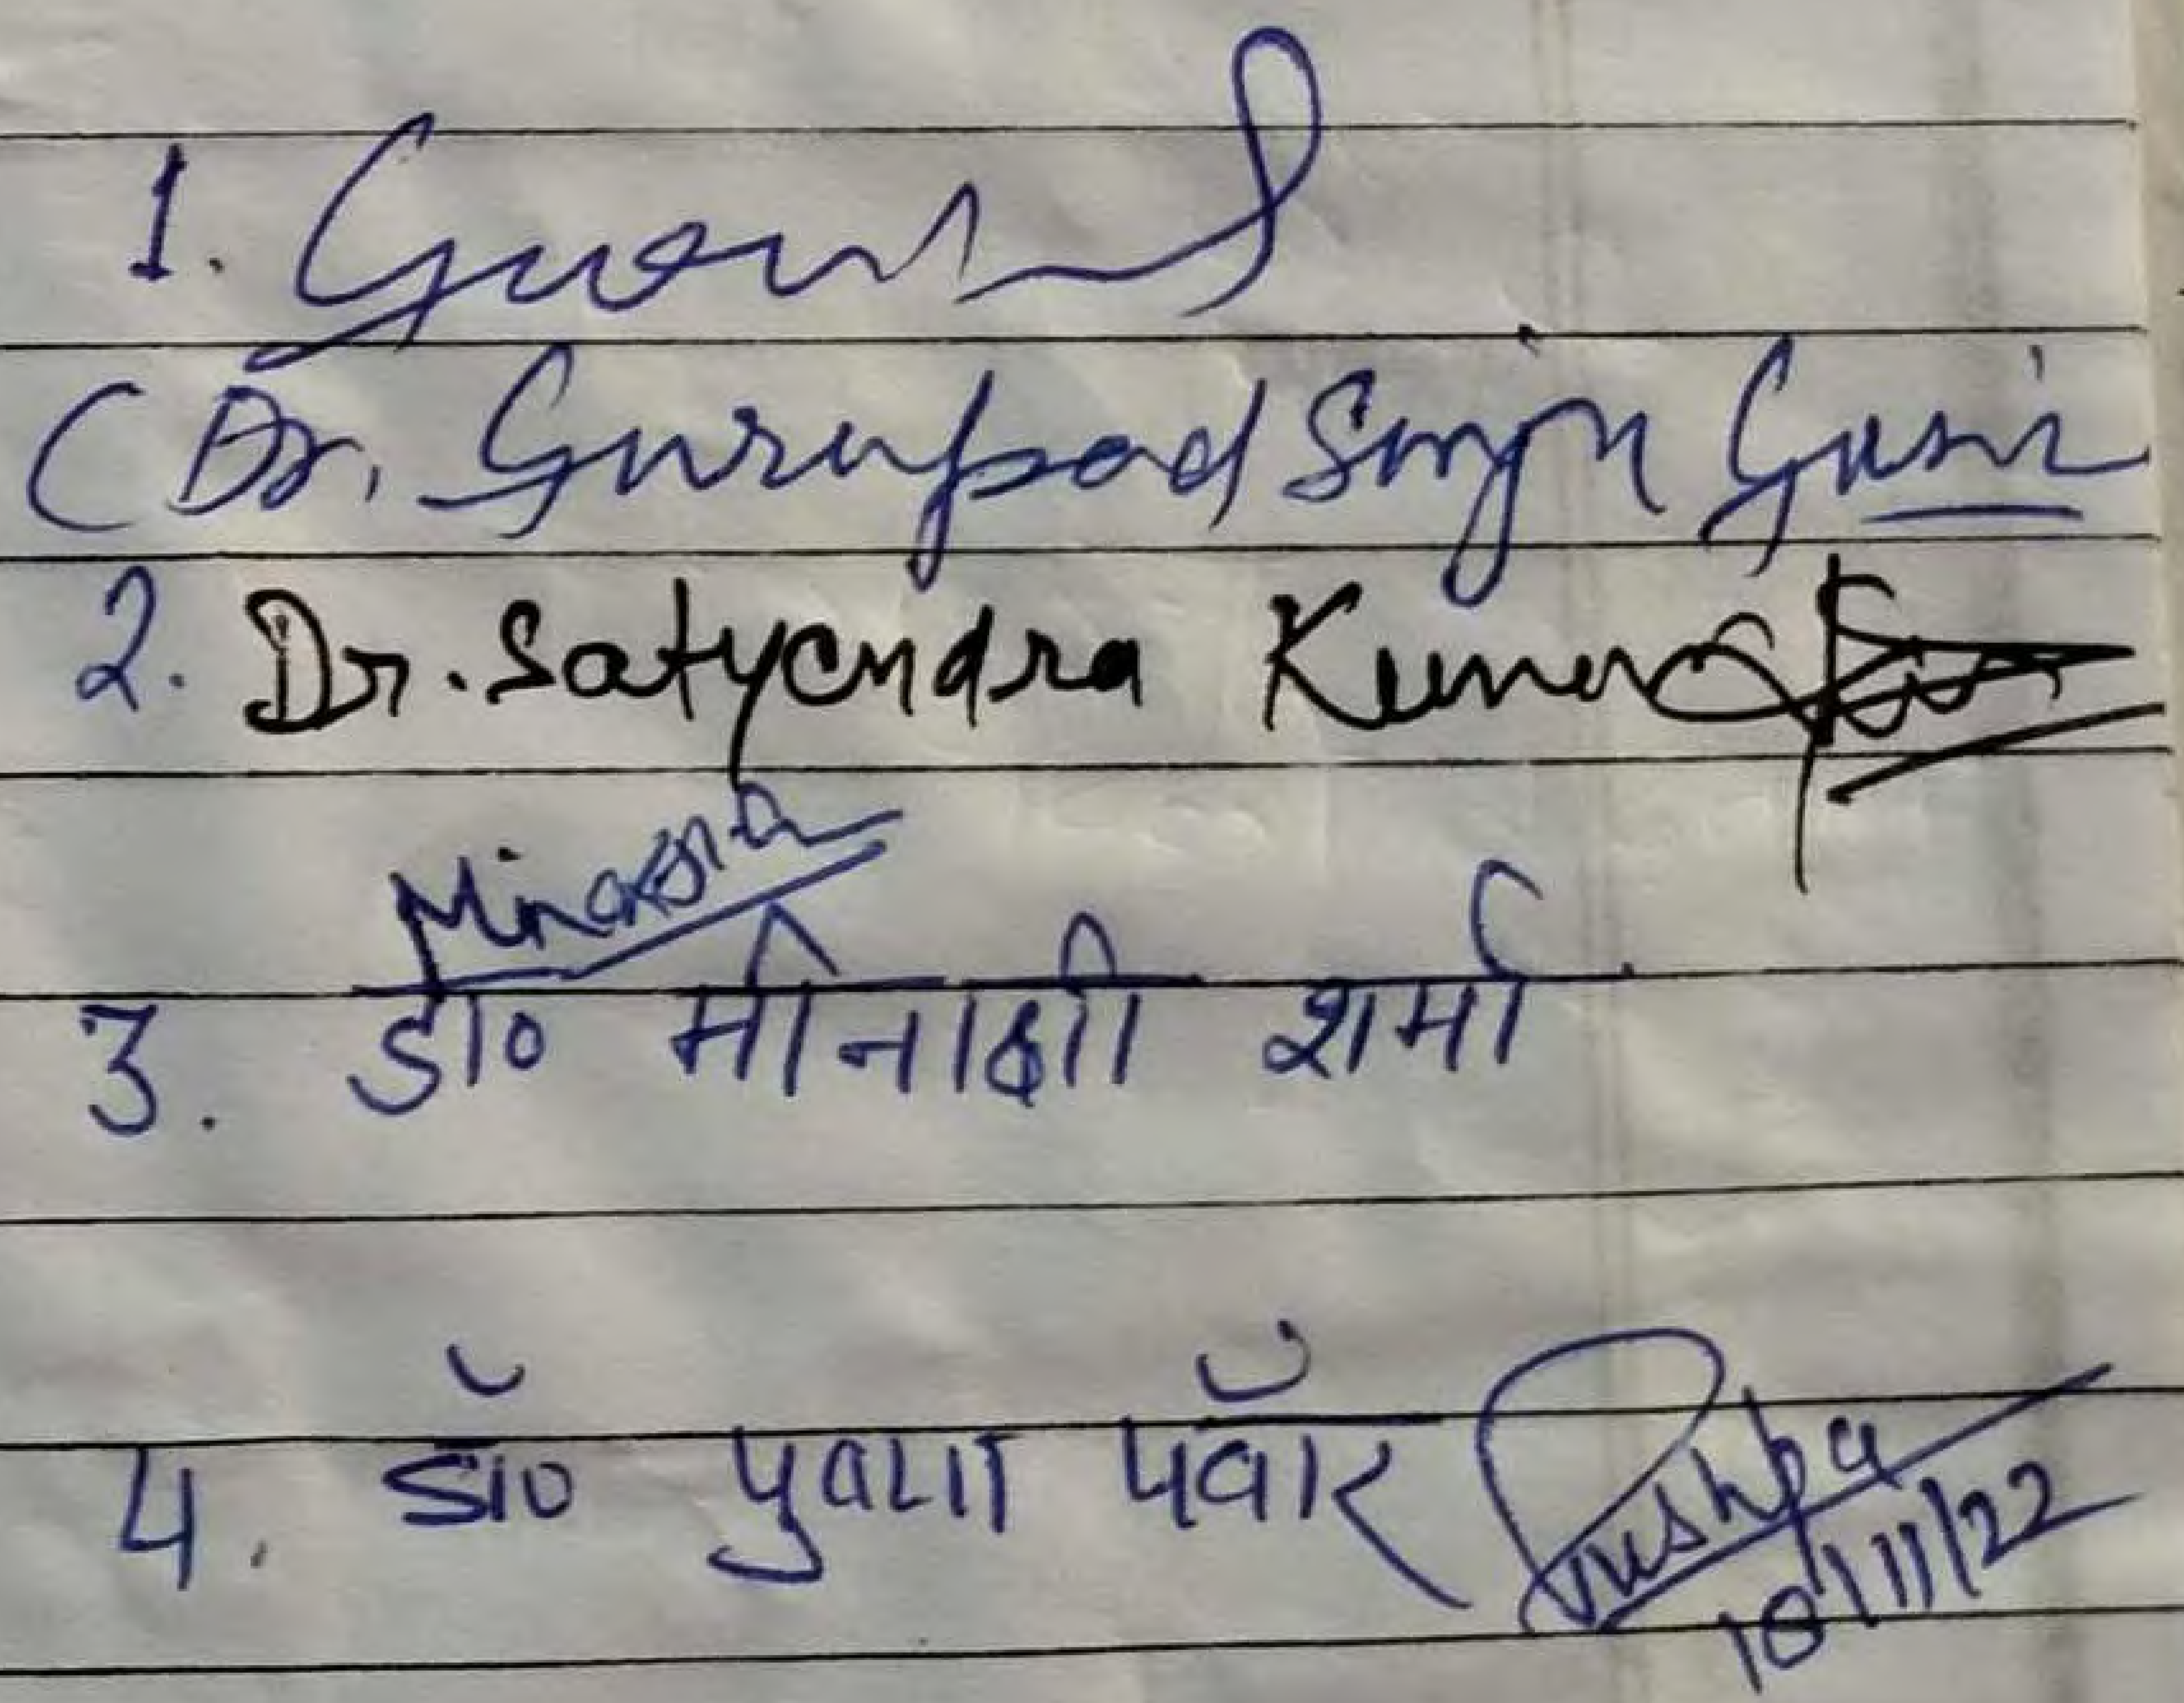 1.
(Dr. Gurupad Singh Gusi
2. Dr. Satyendra Kumar
Minakshi
3. डा० मीनाक्षी शर्मा
4. डॉ० पुष्पा पँवार Pushpa
18/11/22